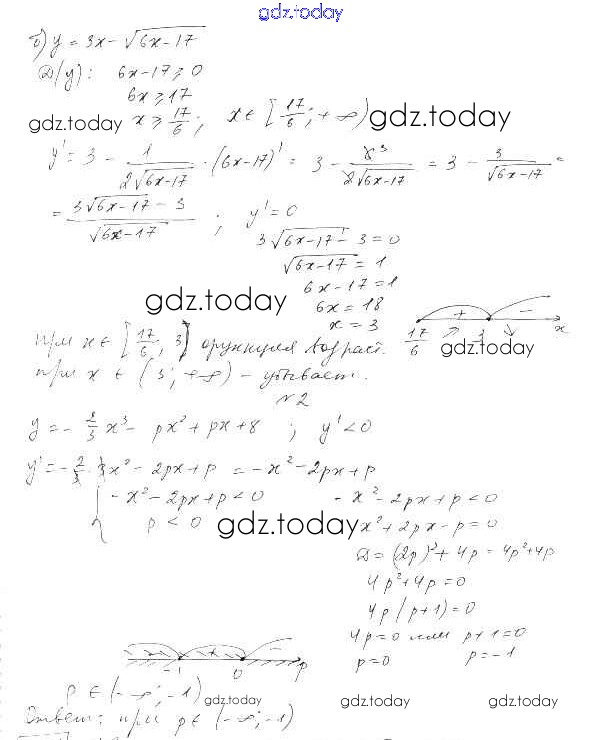 gdz.today
б) y = 3x - √(6x-17)
D(y): 6x-17 ≥ 0
6x ≥ 17
gdz.today x ≥ 17/6; x ∈ [17/6; +∞) gdz.today
y' = 3 - 1/(2√(6x-17)) · (6x-17)' = 3 - 6³/(2√(6x-17)) = 3 - 3/√(6x-17) =
= (3√(6x-17) - 3)/√(6x-17) ; y' = 0
3√(6x-17) - 3 = 0
√(6x-17) = 1
6x-17 = 1
gdz.today 6x = 18
x = 3
+ -
17/6 3 x
При x ∈ [17/6; 3] функция возраст. gdz.today
при x ∈ (3; +∞) - убывает.
№2
y = - x³ - px² + px + 8 ; y' < 0
y' = - 3x² - 2px + p = -x² - 2px + p
{ -x² - 2px + p < 0 -x² - 2px + p < 0
p < 0 gdz.today x² + 2px - p = 0
D = (2p)² + 4p = 4p² + 4p
4p² + 4p = 0
4p(p+1) = 0
4p = 0 или p+1 = 0
p = 0 p = -1
-1 0 p
p ∈ (-∞; -1) gdz.today gdz.today gdz.today
Ответ: при p ∈ (-∞; -1)